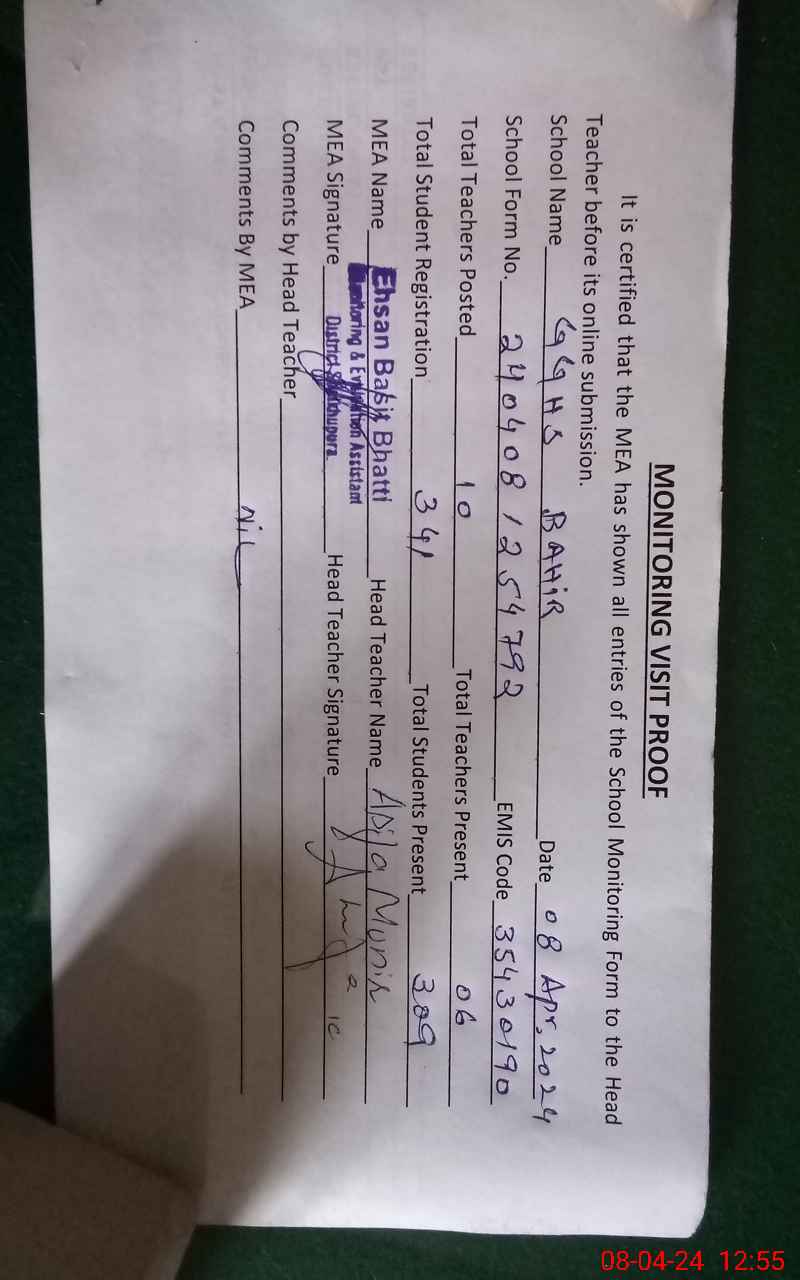 MONITORING VISIT PROOF
It is certified that the MEA has shown all entries of the School Monitoring Form to the Head
Teacher before its online submission.
School Name GGHS BAHiR Date 08 Apr, 2024
School Form No. 240408 1254792 EMIS Code 35430190
Total Teachers Posted 10 Total Teachers Present 06
Total Student Registration 341 Total Students Present 309
MEA Name Ehsan Babit Bhatti Head Teacher Name Adila Munir
Monitoring & Evaluation Assistant
MEA Signature District Sheikhupura Head Teacher Signature
Comments by Head Teacher
Comments By MEA Nil
08-04-24 12:55